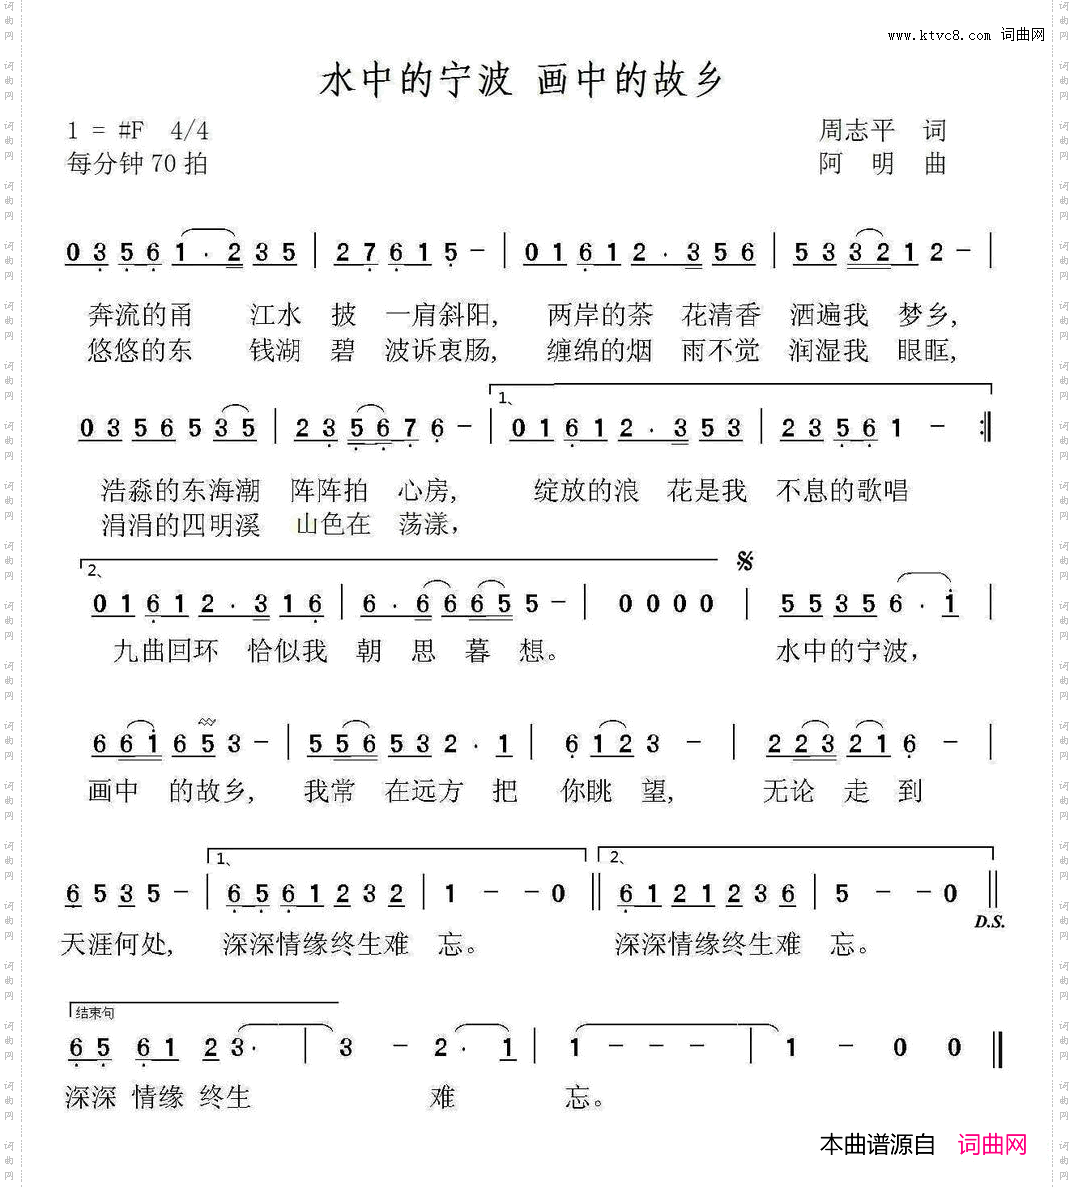 www.ktvc8.com 词曲网
水中的宁波 画中的故乡
1 = #F 4/4
周志平 词
每分钟 70 拍
阿 明 曲
0 3 5 6 1 · 2 3 5 | 2 7 6 1 5 － | 0 1 6 1 2 · 3 5 6 | 5 3 3 2 1 2 － |
奔流的甬 江水 披 一肩斜阳, 两岸的茶 花清香 洒遍我 梦乡,
悠悠的东 钱湖 碧 波诉衷肠, 缠绵的烟 雨不觉 润湿我 眼眶,
1、
0 3 5 6 5 3 5 | 2 3 5 6 7 6 － | 0 1 6 1 2 · 3 5 3 | 2 3 5 6 1 － :||
浩淼的东海潮 阵阵拍 心房, 绽放的浪 花是我 不息的歌唱
涓涓的四明溪 山色在 荡漾，
2、
0 1 6 1 2 · 3 1 6 | 6 · 6 6 6 5 5 － | 0 0 0 0 | 5 5 3 5 6 · 1 |
九曲回环 恰似我 朝 思 暮 想。 水中的宁波，
6 6 1 6 5 3 － | 5 5 6 5 3 2 · 1 | 6 1 2 3 － | 2 2 3 2 1 6 － |
画中 的故乡, 我常 在远方 把 你眺 望, 无论 走 到
1、 2、
6 5 3 5 － | 6 5 6 1 2 3 2 | 1 － － 0 || 6 1 2 1 2 3 6 | 5 － － 0 ||
D.S.
天涯何处, 深深情缘终生难 忘。 深深情缘终生难 忘。
结束句
6 5 6 1 2 3 · | 3 － 2 · 1 | 1 － － － | 1 － 0 0 ||
深深 情缘 终生 难 忘。
本曲谱源自 词曲网